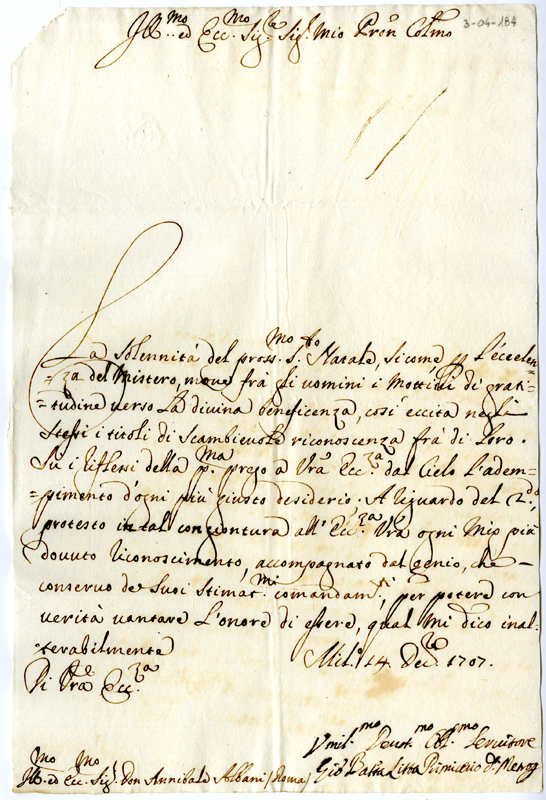 Ill.mo ed Ecc.mo Sig.re Sig.r Mio Pron Colmo
3-04-184
La Solennità del pross.mo S.to Natale, sicome p l'eccelen-
=za del Mistero, move frà gli uomini i Mottivi di grati-
=tudine verso la divina beneficenza, così eccita negli
stessi i titoli di scambievole riconoscenza frà di loro.
Su i riflessi della p.ma prego a Vra Ecc.za dal Cielo l'adem-
=pimento d'ogni più giusto desiderio. A riguardo del 2.do,
protesto in tal congiontura all'Ecc.za Vra ogni Mio più
dovuto riconoscimento, accompagnato dal genio, che
conservo de Suoi Stimat.mi comandam.ti, per potere con
verità vantare l'onore di essere, qual Mi dico inal-
=terabilmente
Mil.o 14. Dec.re 1707.
Di Vra Ecc.za
Vmil.mo Deuot.mo Obl.mo Seruitore
Ill.mo ed Ecc.mo Sig.r Don Annibale Albani (Roma)
Gio Batta Litta Primicerio d.a Metrop